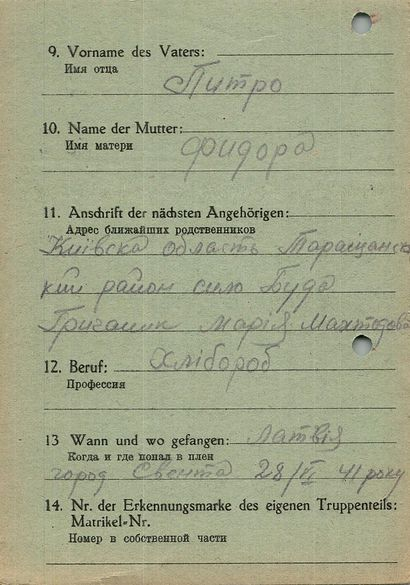 9. Vorname des Vaters:
Имя отца
Питро
10. Name der Mutter:
Имя матери
Фидора
11. Anschrift der nächsten Angehörigen:
Адрес ближайших родственников
Київска область Таращанск
кий район сило Буда
Марія
12. Beruf: Хлібороб
Профессия
13 Wann und wo gefangen: Латвія
Когда и где попал в плен
город Свента 28/VI 41 року
14. Nr. der Erkennungsmarke des eigenen Truppenteils:
Matrikel-Nr.
Номер в собственной части